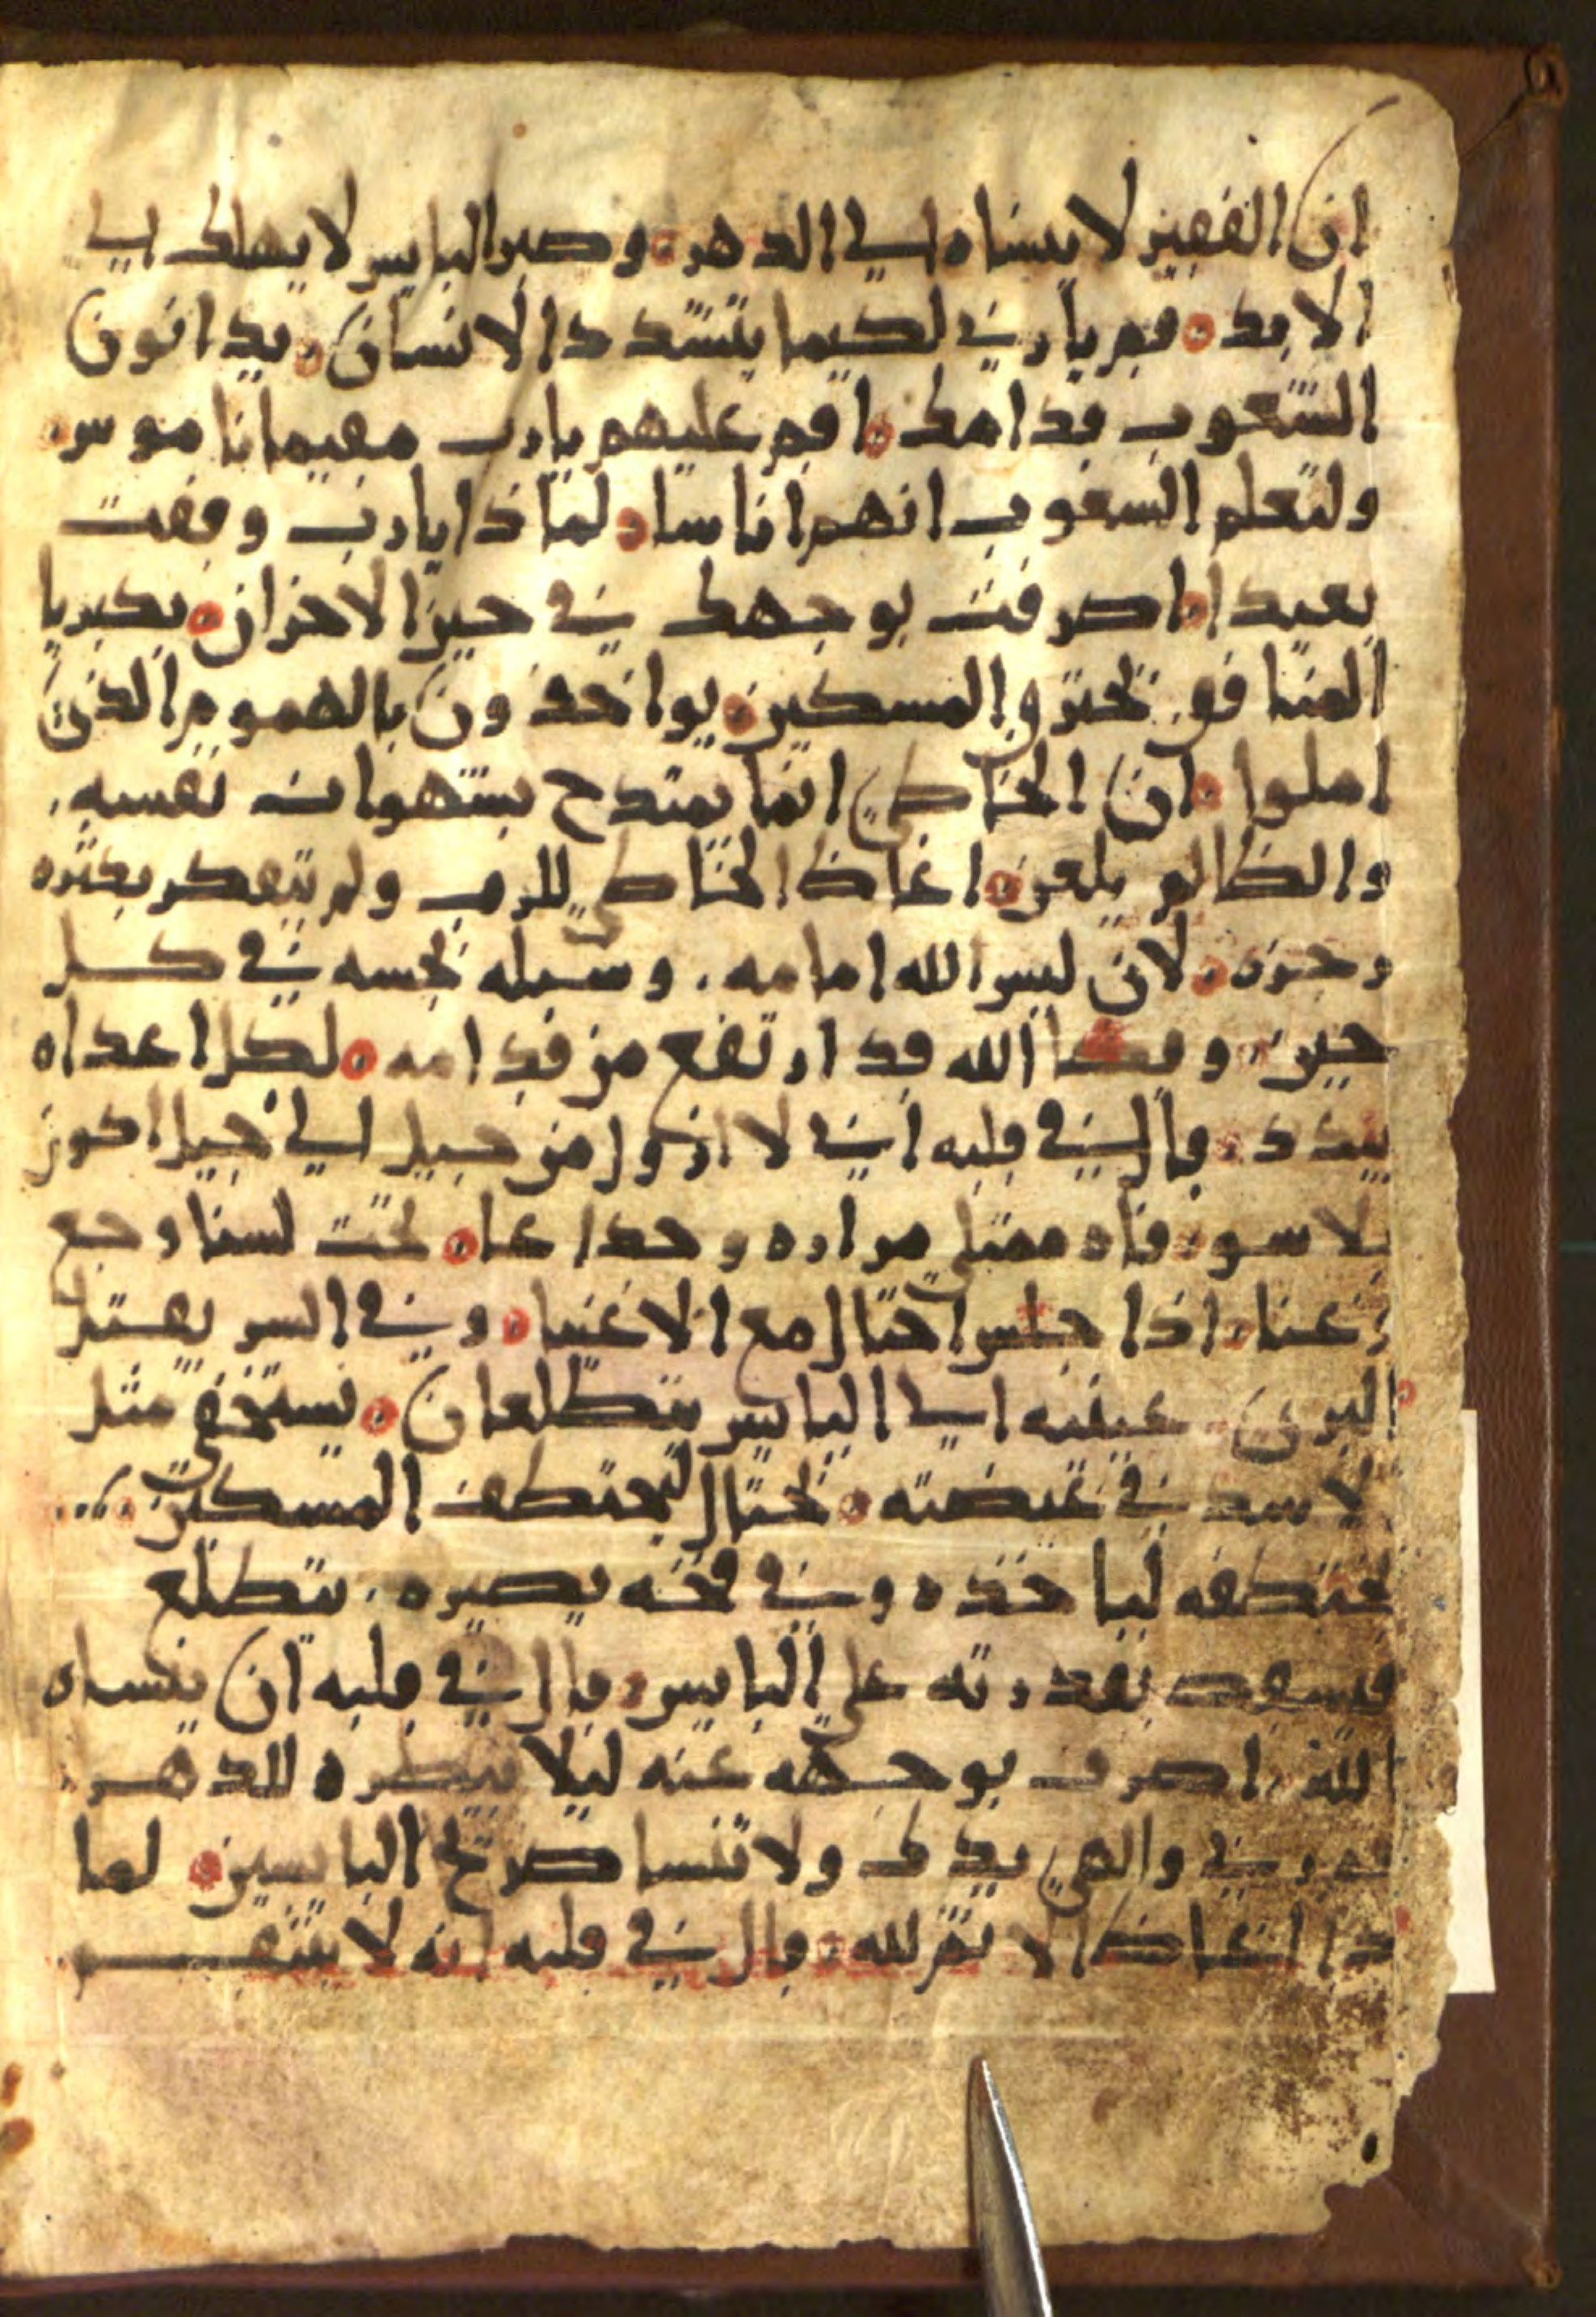 ان الفقير لا ينساه الي الدهر. وصبر البايس لا يهلك الي
الابد. قم يا رب لكيما يتشدد الانسان. يدانون
الشعوب قدامك. اقم عليهم يا رب مقيما ناموس.
ولتعلم الشعوب انهم اناسا. لماذا يا رب وقفت
بعيدا. اصرفت بوجهك في حين الاحزان. بكبريا
المنافق يحترق المسكين. يواخذون بالهموم الذي
املوا. ان الخاطي انما يمتدح بشهوات نفسه.
والظالم يلعن. اغاظ الخاطي للرب ولم يتفكر بكثره
رجزه. لان ليس الله امامه. وسبله نجسه في كل
حين. وقضا الله قد ارتفع من قدامه. لكل اعداه
يبدد. قال في قلبه اني لا ازول من جيل الي جيل اكون
بلا سو. فاه ممتلي مراره وخداعا. تحت لسنا وجع
عنا. اذا جلس احتال مع الاغنيا. وفي السر يقتل
البري. عينيه الي البايس يتطلعان. يستخفي مثل
الاسد في غيضته. يحتال ليختطف المسكين.
يختطفه لياخذه وفي فخه يصيره. يتطلع
فيسقط بقدرته علي البايس. قال في قلبه ان ينساه
الله. اصرف بوجهه عنه ليلا ينظره للدهر.
قم ربي والهي يدك ولا تنسا صريخ البايسين. لما
ذا اغاظ الاثيم لله. قال في قلبه انه لا ينتقم